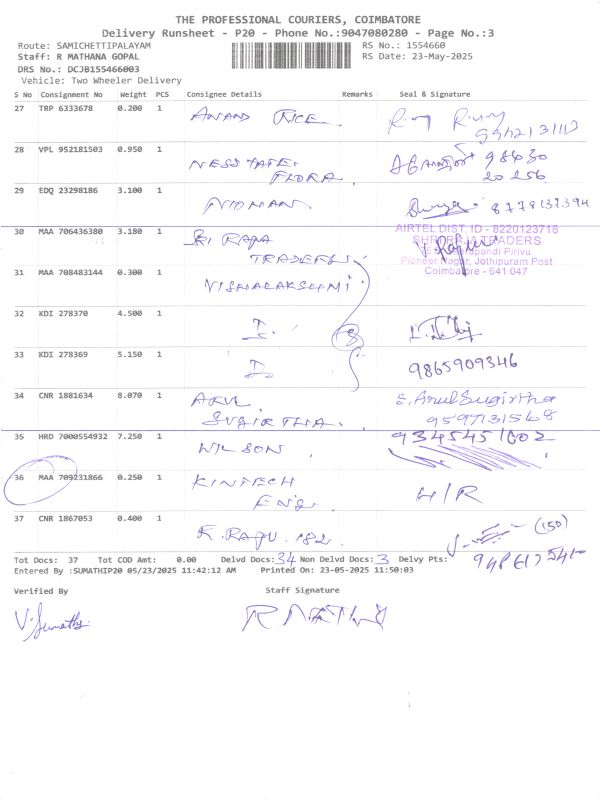 THE PROFESSIONAL COURIERS, COIMBATORE
Delivery Runsheet - P20 - Phone No.:9047080280 - Page No.:3
Route: SAMICHETTIPALAYAM RS No.: 1554660
Staff: R MATHANA GOPAL RS Date: 23-May-2025
DRS No.: DCJB155466003
Vehicle: Two Wheeler Delivery
S No Consignment No Weight PCS Consignee Details Remarks Seal & Signature
27 TRP 6333678 0.200 1 ANAND
28 VPL 952181503 0.950 1 98430
FLORA. 20256
29 EDQ 23298186 3.100 1 NIOMAN. 8778137394
30 MAA 706436380 3.180 1 SRI RAJA AIRTEL DIST. ID - 8220123718
TRADERS TRADERS
Pirivu
Pioneer Nagar, Jothipuram Post
31 MAA 708483144 0.300 1 VISHALAKSHMI Coimbatore - 641 047
32 KDI 278370 4.500 1 3
33 KDI 278369 5.150 1 9865909346
34 CNR 1881634 8.070 1 ARUL S. ArulSugirtha
SUGIRTHA. 9597131568
35 HRD 7000554932 7.250 1 WILSON 9345451002
36 MAA 709231866 0.250 1 KINTECH H/R
ENG.
37 CNR 1867053 0.400 1 K. RAJU. 182. (150)
Tot Docs: 37 Tot COD Amt: 0.00 Delvd Docs: 34 Non Delvd Docs: 3 Delvy Pts:
Entered By :SUMATHIP20 05/23/2025 11:42:12 AM Printed On: 23-05-2025 11:50:03
Verified By Staff Signature
V. Sumathy